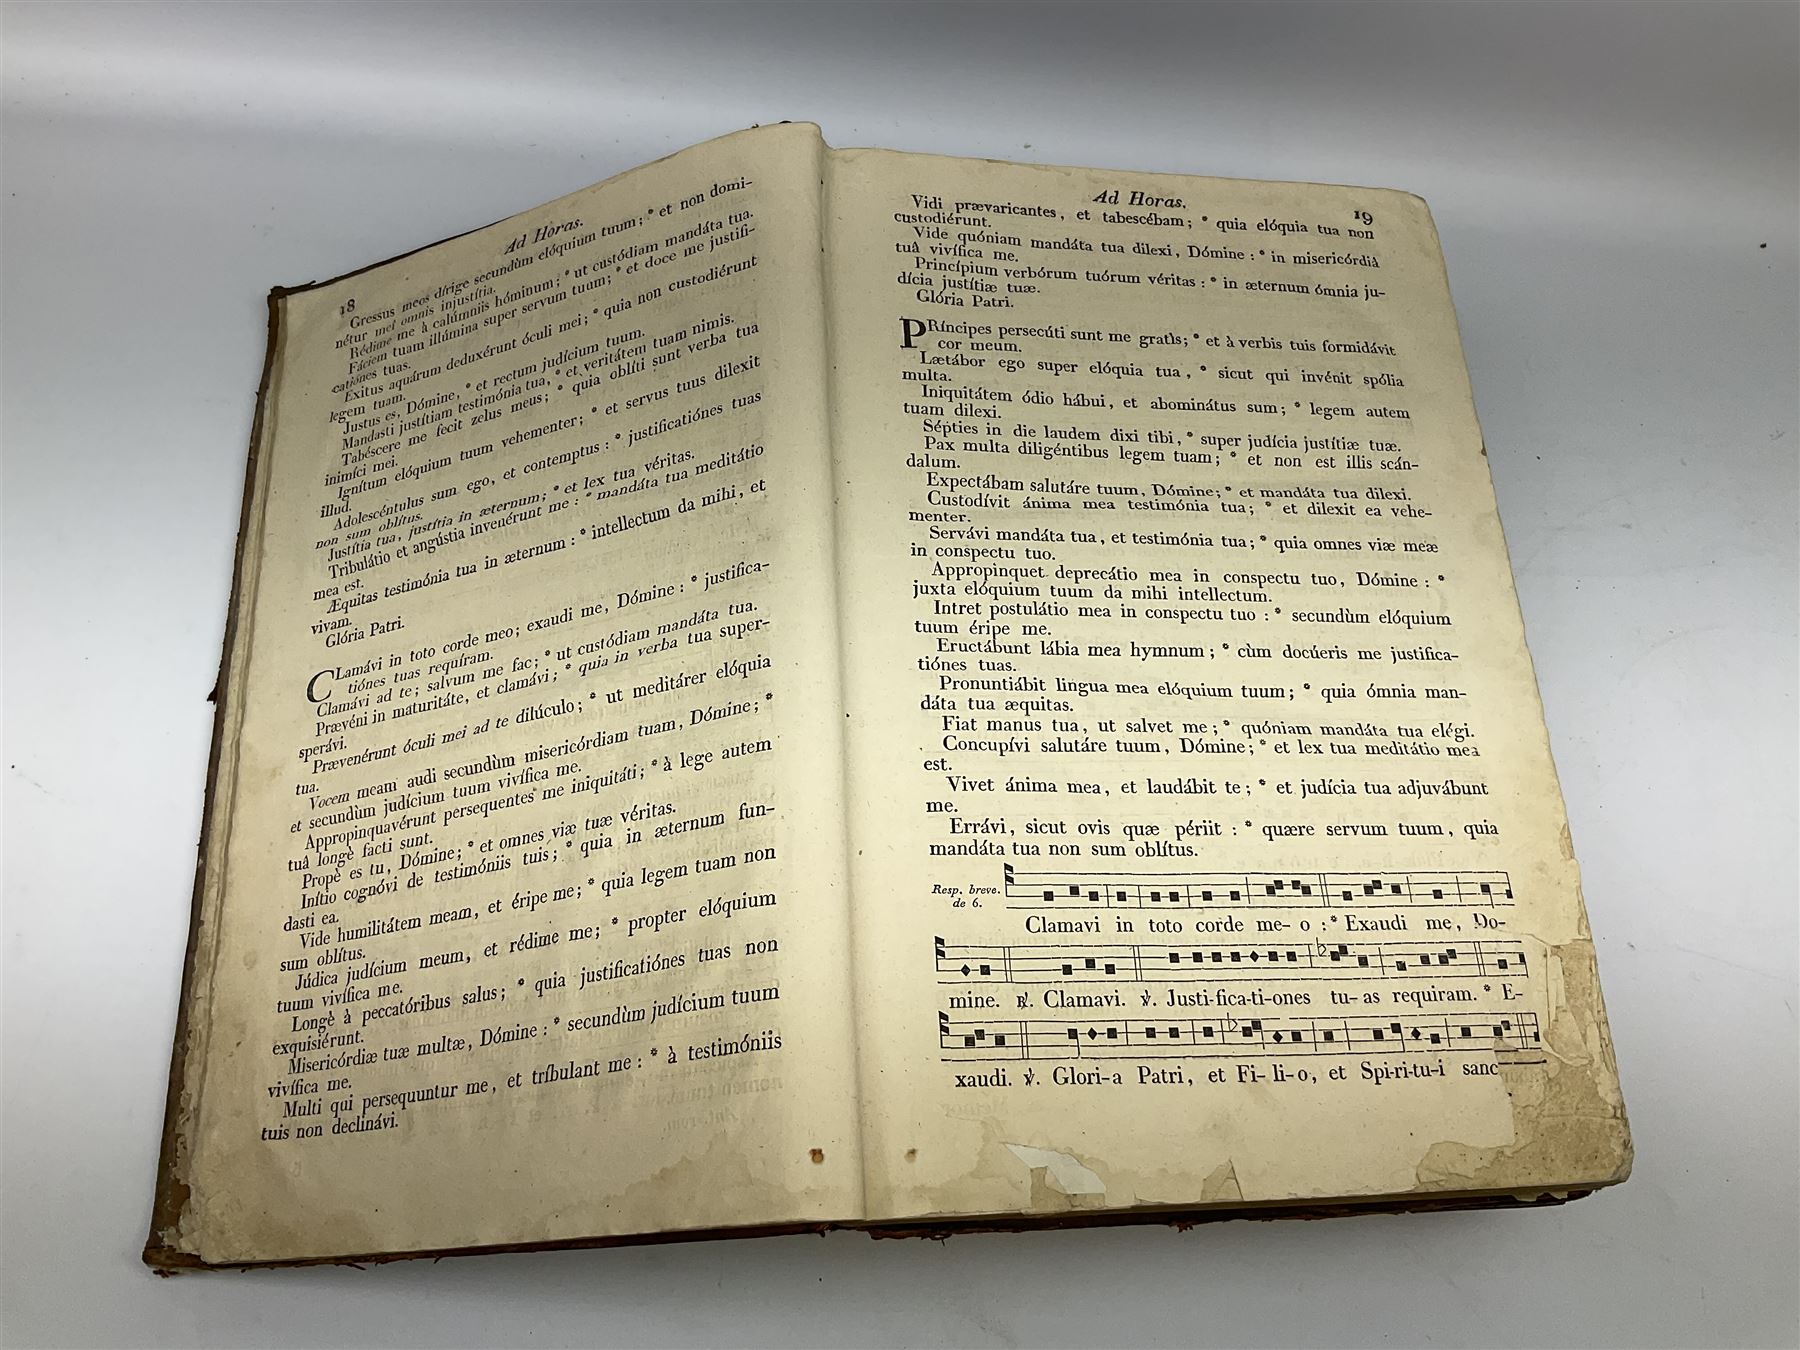 18
Ad Horas.
Gressus meos dírige secundùm elóquium tuum; * et non domi-
nétur meî omnis injustítia.
Rédime me à calúmniis hóminum; * ut custódiam mandáta tua.
Fáciem tuam illúmina super servum tuum; * et doce me justifi-
catiónes tuas.
Exitus aquárum deduxérunt óculi mei; * quia non custodiérunt
legem tuam.
Justus es, Dómine, * et rectum judícium tuum.
Mandasti justítiam testimónia tua, * et veritátem tuam nimis.
Tabéscere me fecit zelus meus; * quia oblíti sunt verba tua
inimíci mei.
Ignítum elóquium tuum vehementer; * et servus tuus dilexit
illud.
Adolescéntulus sum ego, et contemptus : * justificatiónes tuas
non sum oblítus.
Justítia tua, justítia in æternum; * et lex tua véritas.
Tribulátio et angústia invenérunt me : * mandáta tua meditátio
mea est.
Æquitas testimónia tua in æternum : * intellectum da mihi, et
vivam.
Glória Patri.
CLamávi in toto corde meo; exaudi me, Dómine : * justifica-
tiónes tuas requíram.
Clamávi ad te; salvum me fac; * ut custódiam mandáta tua.
Prævéni in maturitáte, et clamávi; * quia in verba tua super-
sperávi.
Prævenérunt óculi mei ad te dilúculo; * ut meditárer elóquia
tua.
Vocem meam audi secundùm misericórdiam tuam, Dómine; *
et secundùm judícium tuum vivífica me.
Appropinquavérunt persequentes me iniquitáti; * à lege autem
tuâ longè facti sunt.
Propè es tu, Dómine; * et omnes viæ tuæ véritas.
Inítio cognóvi de testimóniis tuis; * quia in æternum fun-
dasti ea.
Vide humilitátem meam, et éripe me; * quia legem tuam non
sum oblítus.
Júdica judícium meum, et rédime me; * propter elóquium
tuum vivífica me.
Longè à peccatóribus salus; * quia justificatiónes tuas non
exquisiérunt.
Misericórdiæ tuæ multæ, Dómine : * secundùm judícium tuum
vivífica me.
Multi qui persequuntur me, et tríbulant me : * à testimóniis
tuis non declinávi.
Ad Horas.
19
Vidi prævaricantes, et tabescébam; * quia elóquia tua non
custodiérunt.
Vide quóniam mandáta tua dilexi, Dómine : * in misericórdiâ
tuâ vivífica me.
Princípium verbórum tuórum véritas : * in æternum ómnia ju-
dícia justítiæ tuæ.
Glória Patri.
PRíncipes persecúti sunt me gratìs; * et à verbis tuis formidávit
cor meum.
Lætábor ego super elóquia tua, * sicut qui invénit spólia
multa.
Iniquitátem ódio hábui, et abominátus sum; * legem autem
tuam dilexi.
Sépties in die laudem dixi tibi, * super judícia justítiæ tuæ.
Pax multa diligéntibus legem tuam; * et non est illis scán-
dalum.
Expectábam salutáre tuum, Dómine; * et mandáta tua dilexi.
Custodívit ánima mea testimónia tua; * et dilexit ea vehe-
menter.
Servávi mandáta tua, et testimónia tua; * quia omnes viæ meæ
in conspectu tuo.
Appropinquet deprecátio mea in conspectu tuo, Dómine : *
juxta elóquium tuum da mihi intellectum.
Intret postulátio mea in conspectu tuo : * secundùm elóquium
tuum éripe me.
Eructábunt lábia mea hymnum; * cùm docúeris me justifica-
tiónes tuas.
Pronuntiábit lingua mea elóquium tuum; * quia ómnia man-
dáta tua æquitas.
Fiat manus tua, ut salvet me; * quóniam mandáta tua elégi.
Concupívi salutáre tuum, Dómine; * et lex tua meditátio mea
est.
Vivet ánima mea, et laudábit te; * et judícia tua adjuvábunt
me.
Errávi, sicut ovis quæ périit : * quære servum tuum, quia
mandáta tua non sum oblítus.
Resp. breve.
de 6.
Clamavi in toto corde me- o : * Exaudi me, Do-
mine. ℟. Clamavi. ℣. Justi-fica-ti-ones tu- as requiram. * E-
xaudi. ℣. Glori-a Patri, et Fi- li-o, et Spi-ri-tu-i sanc